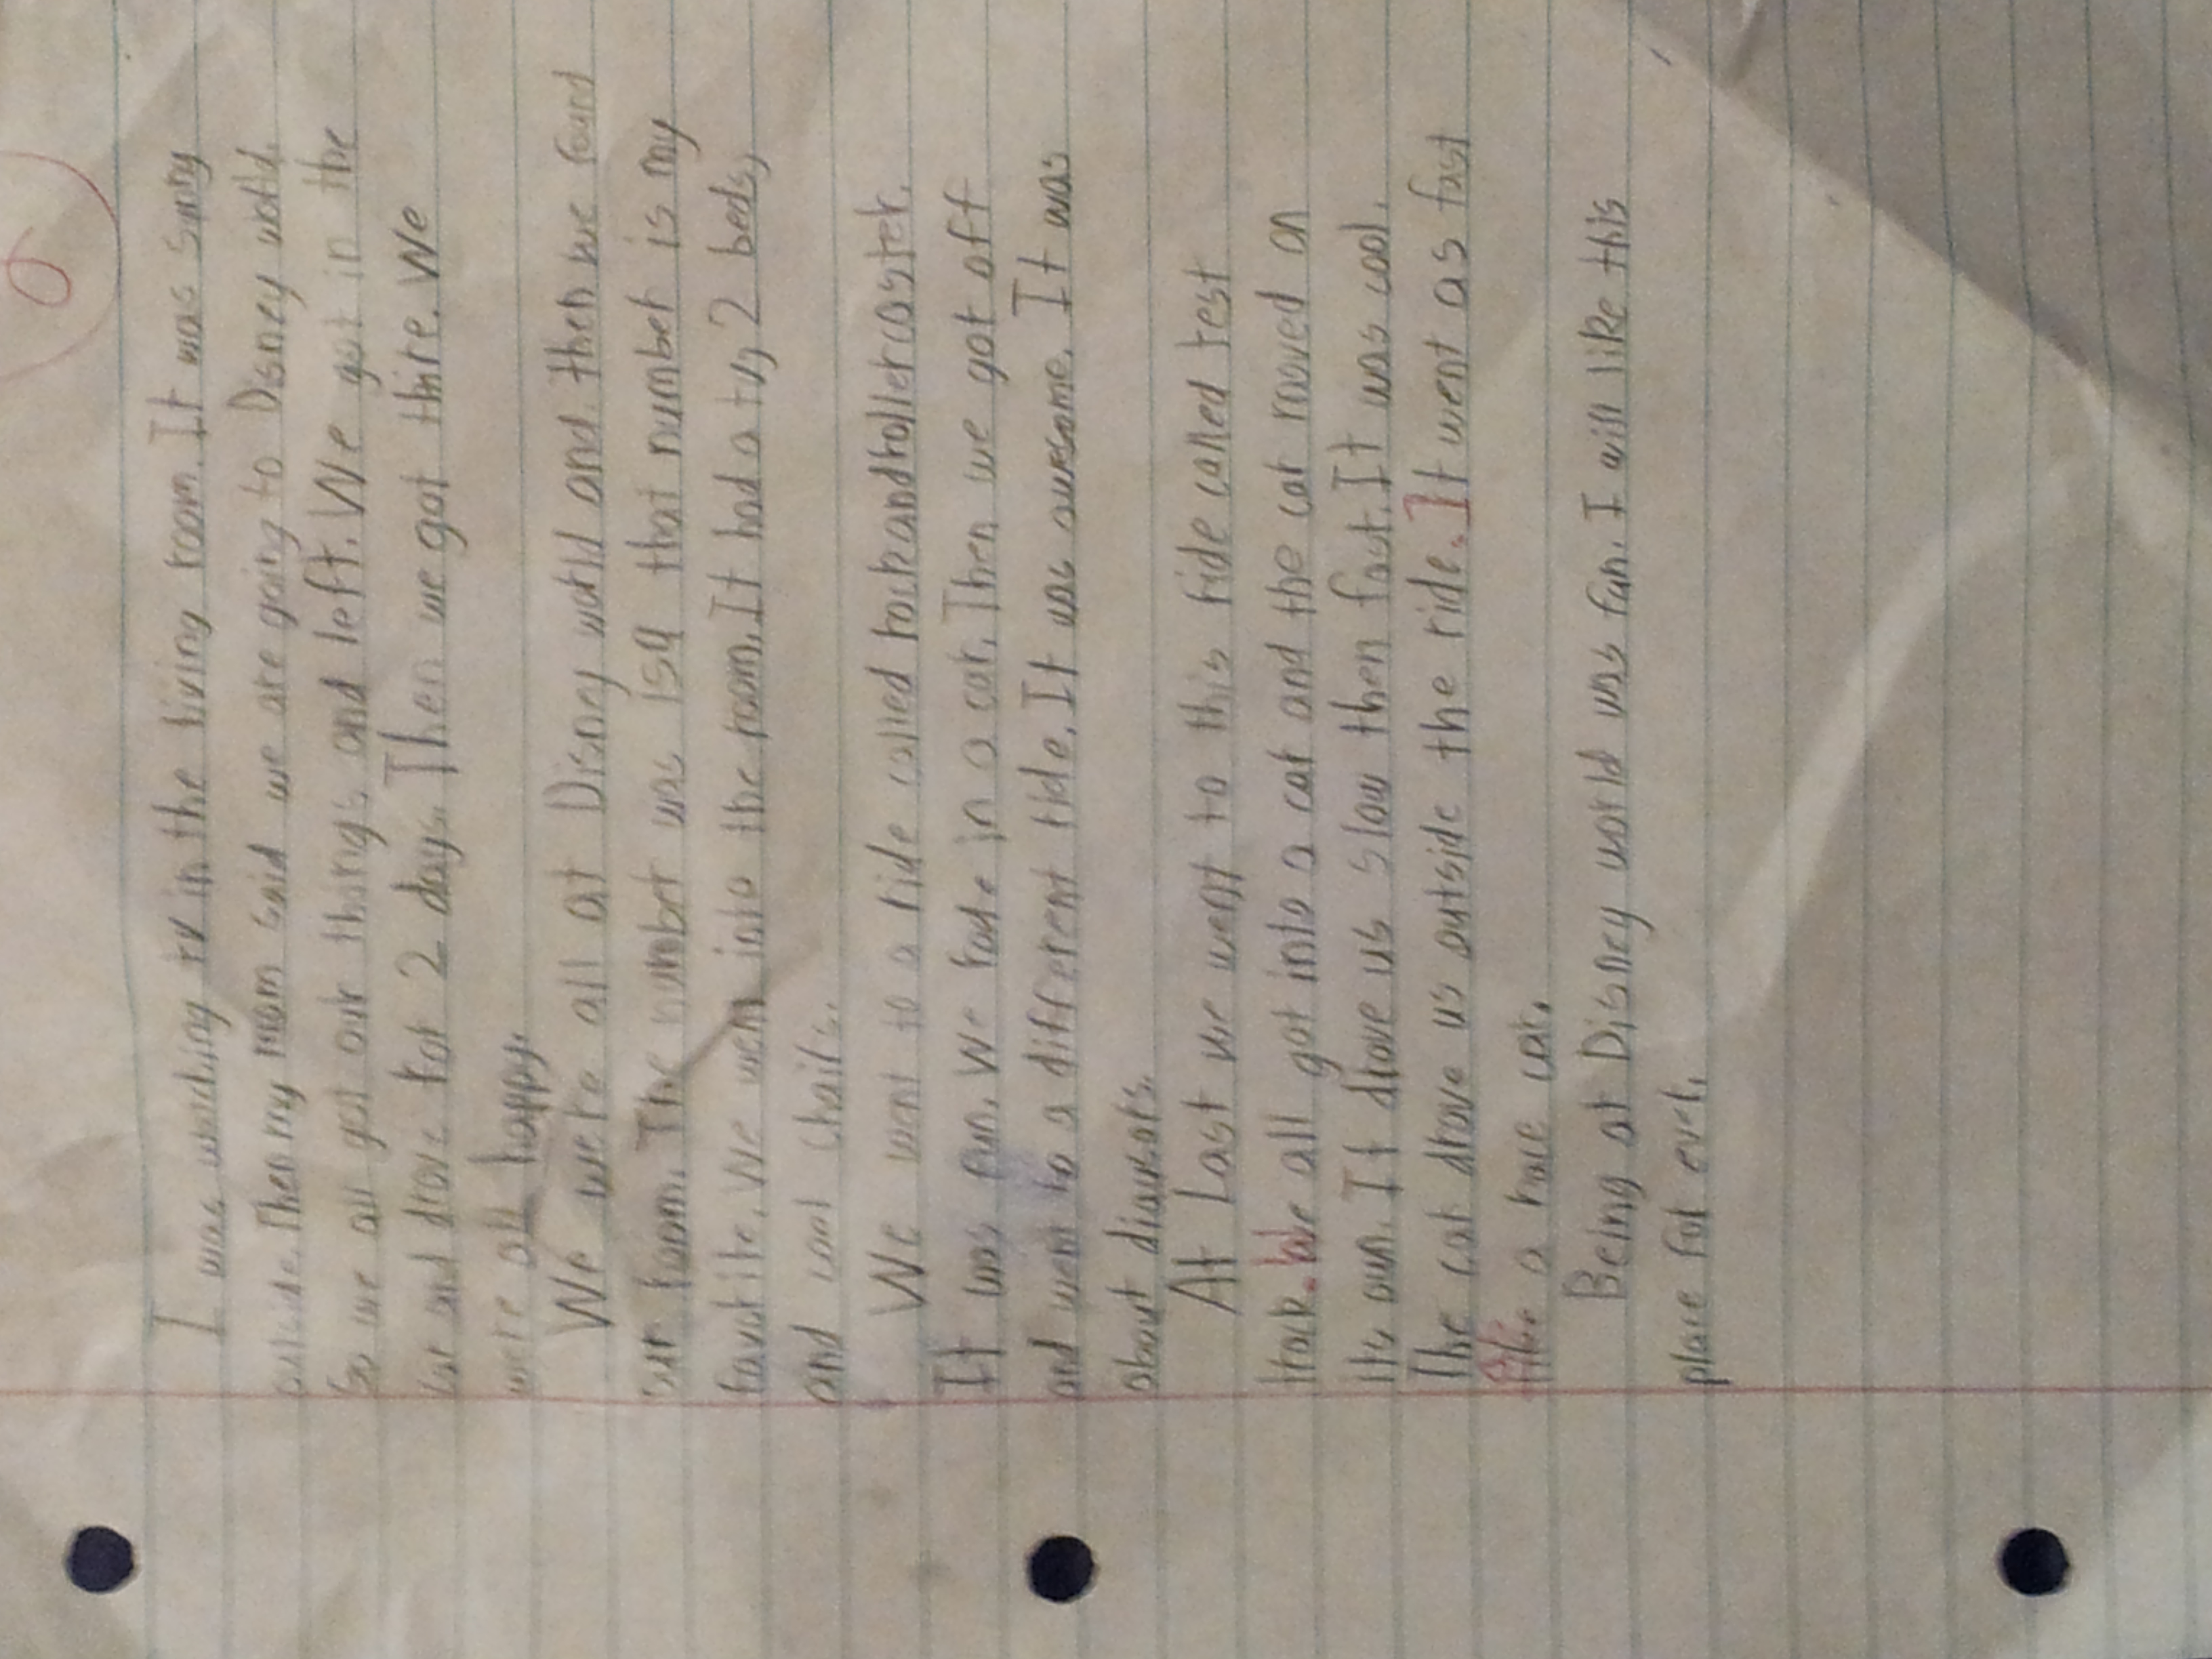 6
I was watching tv in the living room. It was sunny
outside. Then my mom said we are going to Disney world.
So we all got our things and left. We got in the
car and drove for 2 days. Then we got thire. We
were all happy.
We were all at Disney world and then we found
our room. The number was 159 that number is my
favorite. We went into the room. It had a tv, 2 beds,
and cool chairs.
We went to a ride called rockandrollercoaster.
It was fun. We rode in a car. Then we got off
and went to a different ride. It was awesome. It was
about dianosors.
At Last we went to this ride called test
track. We all got into a car and the car moved on
its own. It drove us slow then fast. It was cool.
The car drove us outside the ride. It went as fast
a race car.
Being at Disney world was fun. I will like this
place for ever.